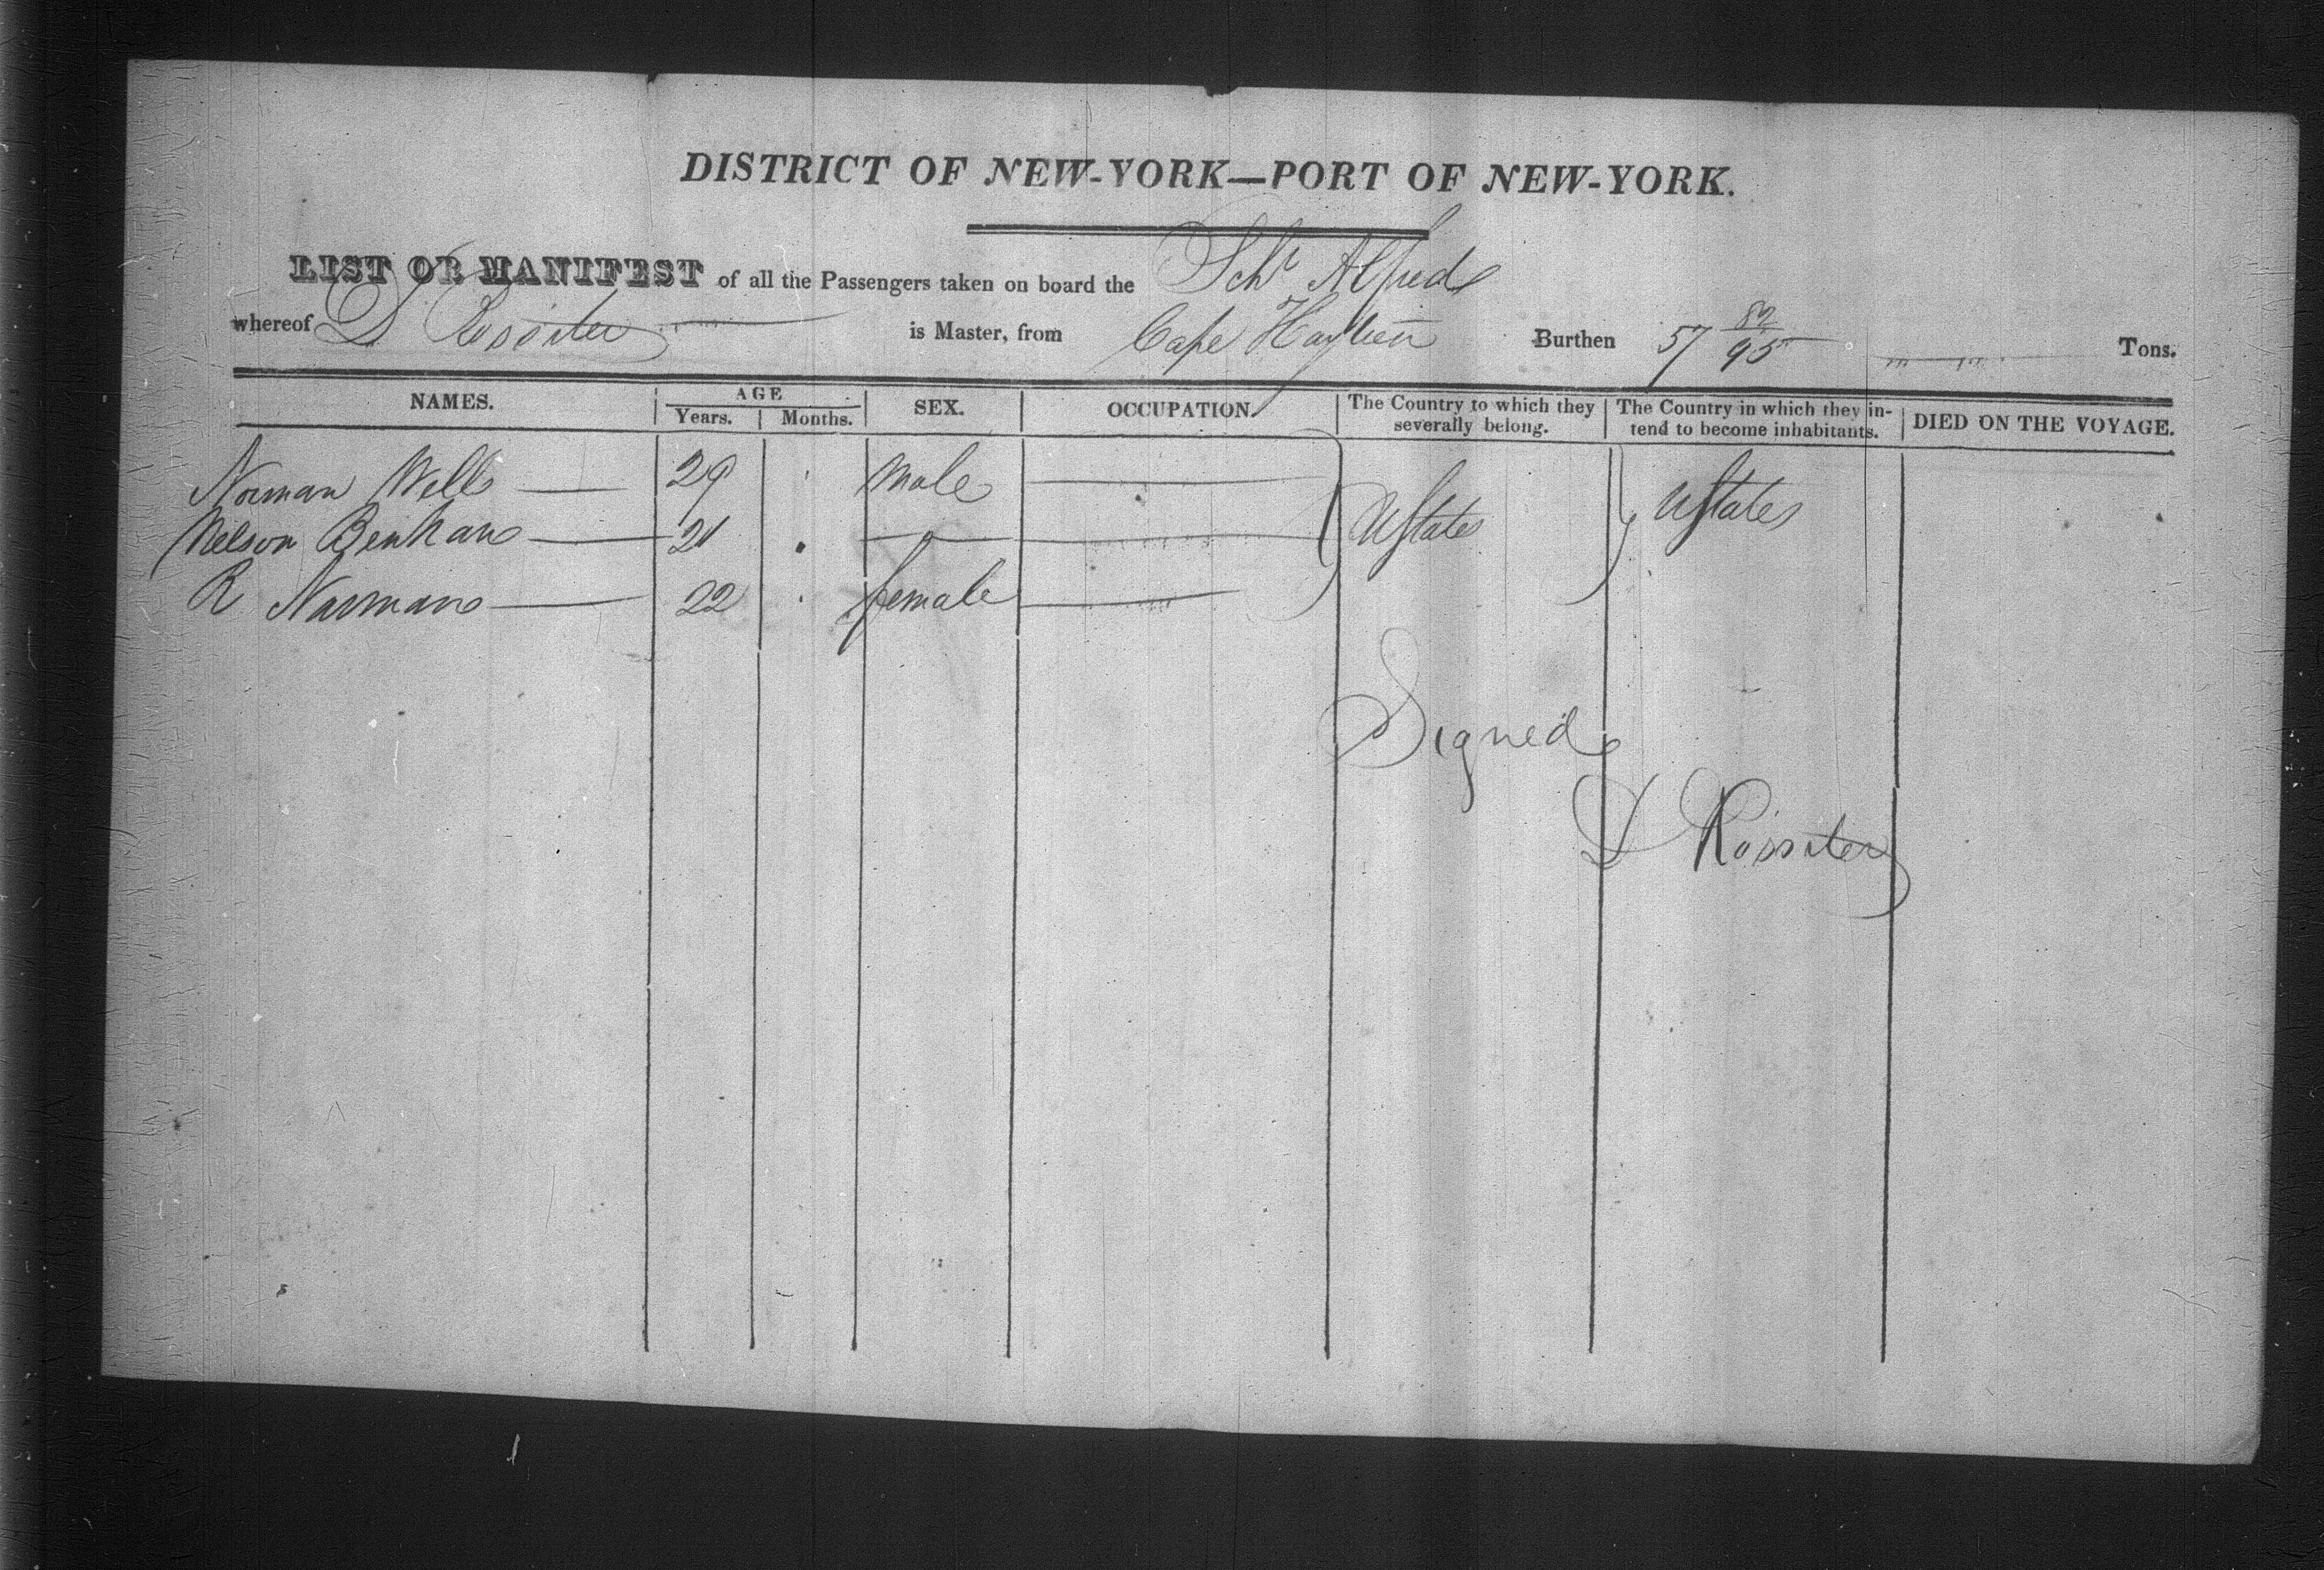 DISTRICT OF NEW-YORK—PORT OF NEW-YORK.
LIST OR MANIFEST of all the Passengers taken on board the Schr Alfred
whereof Rossiter is Master, from Cape Haytien Burthen 57 82/95 Tons.
NAMES. AGE Years. Months. SEX. OCCUPATION. The Country to which they severally belong. The Country in which they intend to become inhabitants. DIED ON THE VOYAGE.
Norman Wells — 29 Male — UStates UStates
Nelson Benham — 21 — —
R Norman — 22 female —
Signed
Rossiter